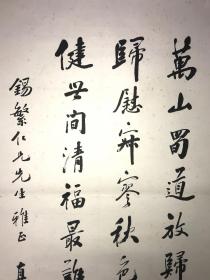 萬山蜀道放歸
歸慰寂寥秋色
健世間清福最誰
錫繁仁兄先生雅正